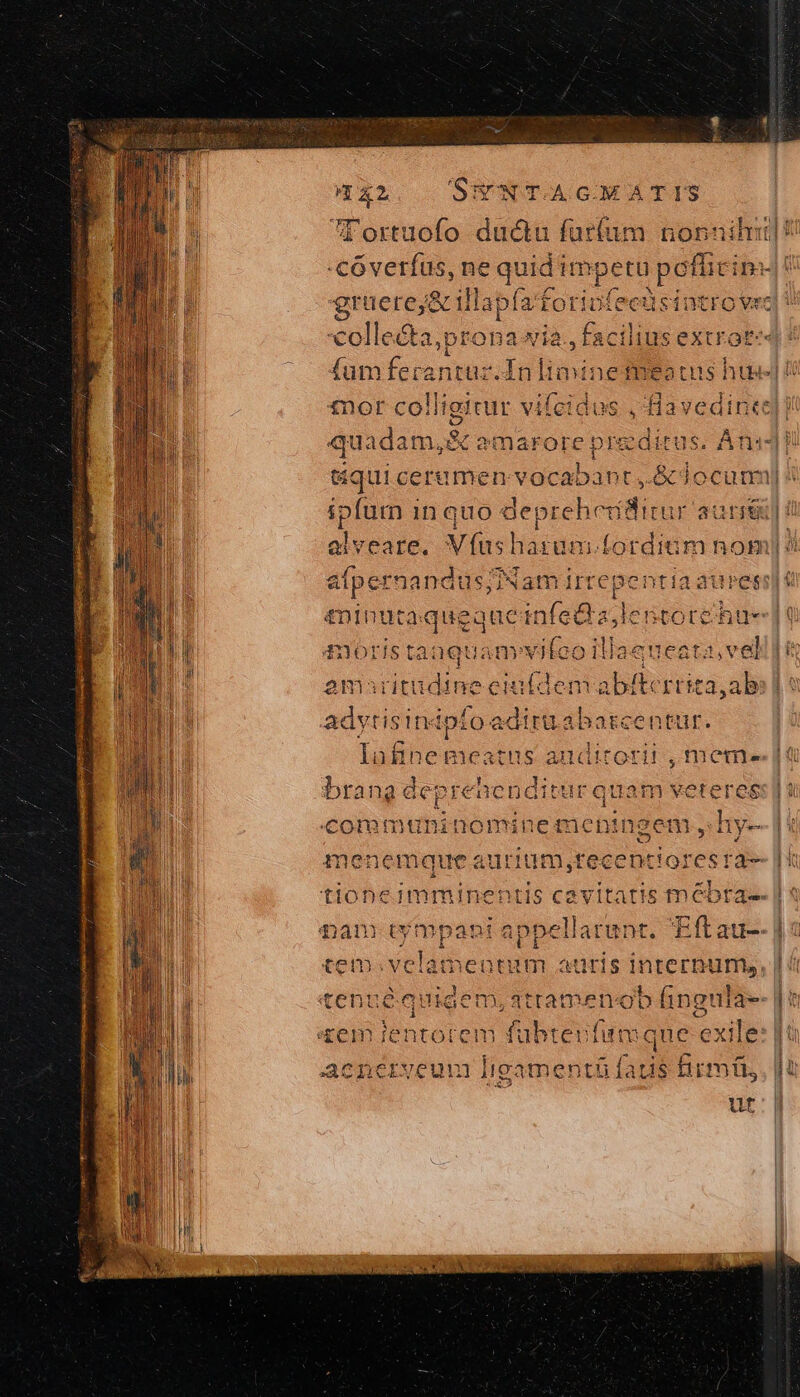 142 SYNTAGMATIS
Tortuoſo ductu ſurſum nonnihil
cõverſus, ne quid impetu poſſit in-
gruere, & illapſa forinſecùs intro vel
collecta, prona via, facilius extror-
ſum ferantur. In limine meatus hu-
mor colligitur viſcidus, flavedine
quadam, & amarore præditus. An-
tiqui cerumen vocabant, & locum
ipſum in quo deprehenditur auriũ
alveare. Vſus harum ſordium non
aſpernandus, Nam irrepentia aures
minutaqueque infecta, lentore hu-
moris tanquam viſco illaqueata, vel
amaritudine eiuſdem abſterrita, ab
adytis in ipſo aditu abarcentur.
In fine meatus auditorii, mem-
brana deprehenditur quam veteres
communi nomine meningem, hy-
menemque aurium, recentiores ra-
tione imminentis cavitatis mẽbra-
nam tympani appellarunt. Eſt au-
tem velamentum auris internum,
tenue quidem, attamen ob ſingula-
rem lentorem ſubter ſumque exile
ac nerveum ligamentũ ſatis firmũ,
ut